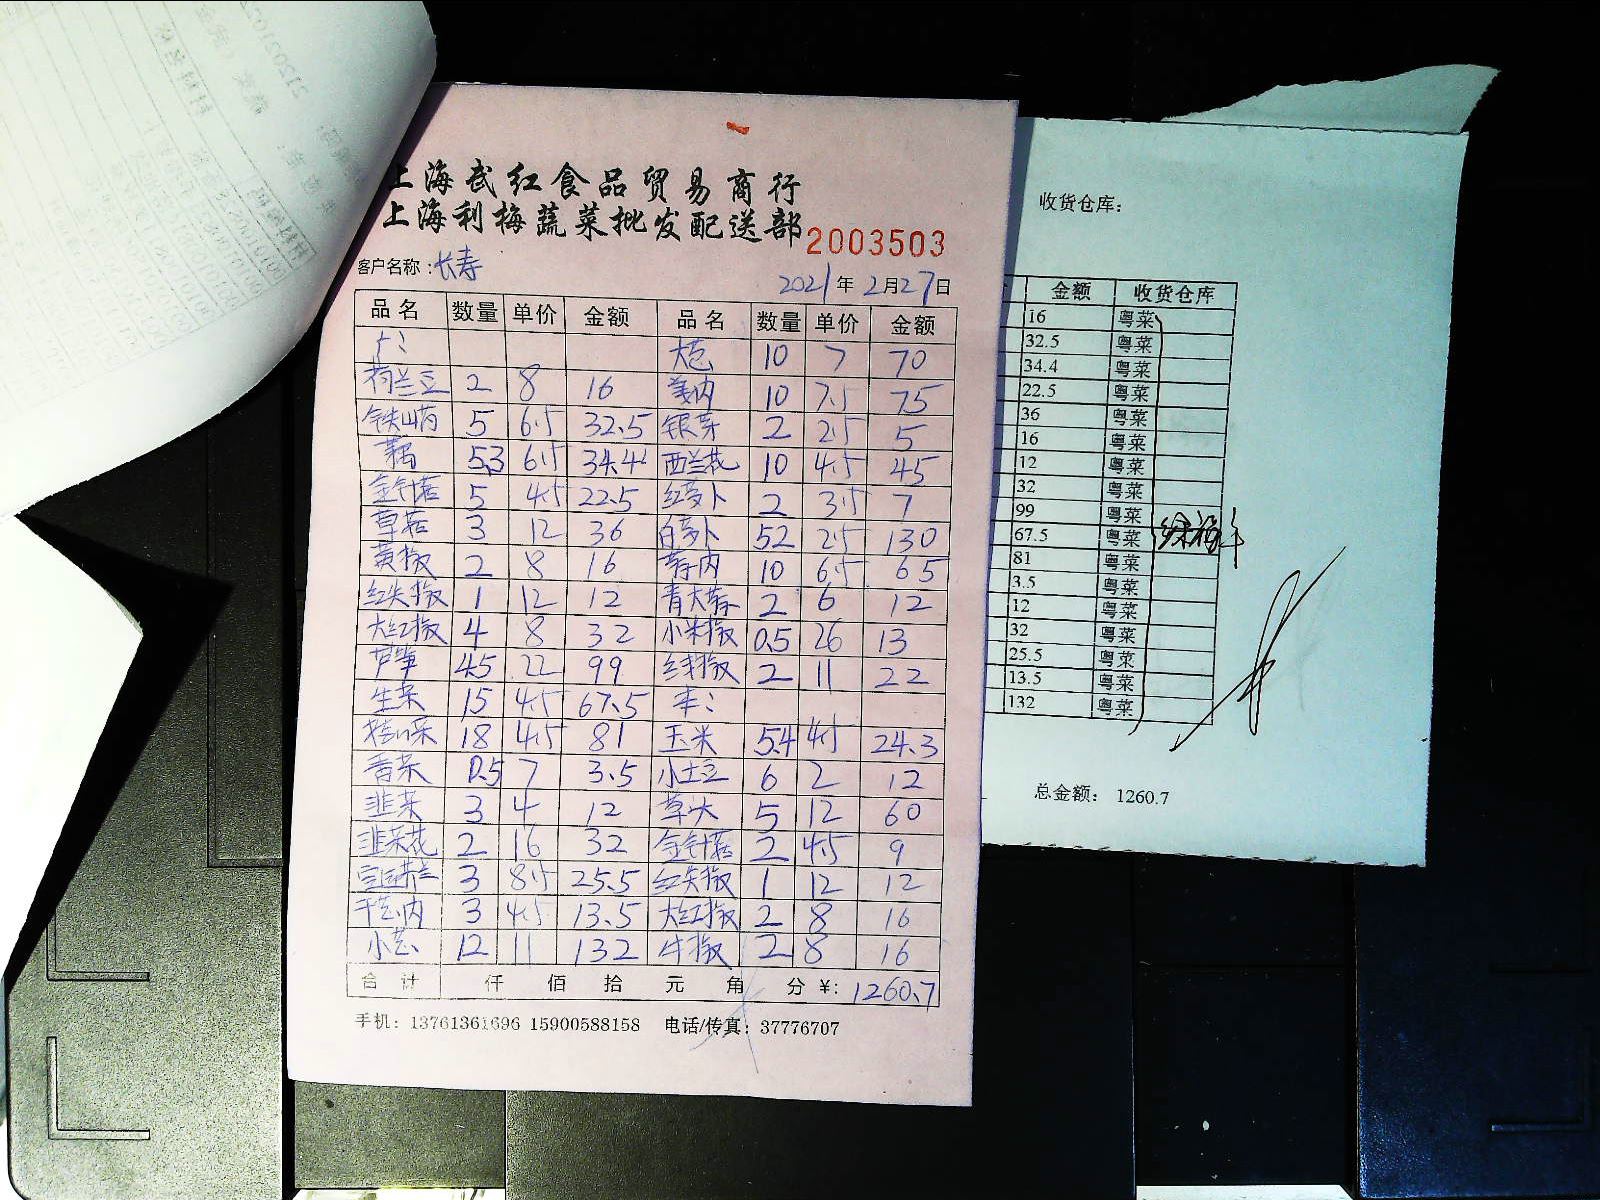 上海武红食品贸易商行
上海利梅蔬菜批发配送部 2003503
客户名称：长寿 2021年2月27日
品名 数量 单价 金额 品名 数量 单价 金额
上： 大芒 10 7 70
荷兰豆 2 8 16 姜肉 10 7.5 75
铁山药 5 6.5 32.5 银芽 2 2.5 5
藕 5.3 6.5 34.4 西兰花 10 4.5 45
金针菇 5 4.5 22.5 红萝卜 2 3.5 7
草菇 3 12 36 白萝卜 52 2.5 130
黄椒 2 8 16 蒜肉 10 6.5 65
红尖椒 1 12 12 青大蒜 2 6 12
大红椒 4 8 32 小米椒 0.5 26 13
芦笋 4.5 22 99 线椒 2 11 22
生菜 15 4.5 67.5
18 4.5 81 玉米 5.4 4.5 24.3
香菜 0.5 7 3.5 小土豆 6 2 12
韭菜 3 4 12 草头 5 12 60
韭菜花 2 16 32 金针菇 2 4.5 9
3 8.5 25.5 红尖椒 1 12 12
干芒肉 3 4.5 13.5 大红椒 2 8 16
小芒 12 11 132 牛椒 2 8 16
合计 仟 佰 拾 元 角 分 ¥: 1260.7
手机：13761361696 15900588158 电话/传真：37776707
收货仓库：
金额 收货仓库
16 粤菜
32.5 粤菜
34.4 粤菜
22.5 粤菜
36 粤菜
16 粤菜
12 粤菜
32 粤菜
99 粤菜
67.5 粤菜
81 粤菜
3.5 粤菜
12 粤菜
32 粤菜
25.5 粤菜
13.5 粤菜
132 粤菜
总金额： 1260.7